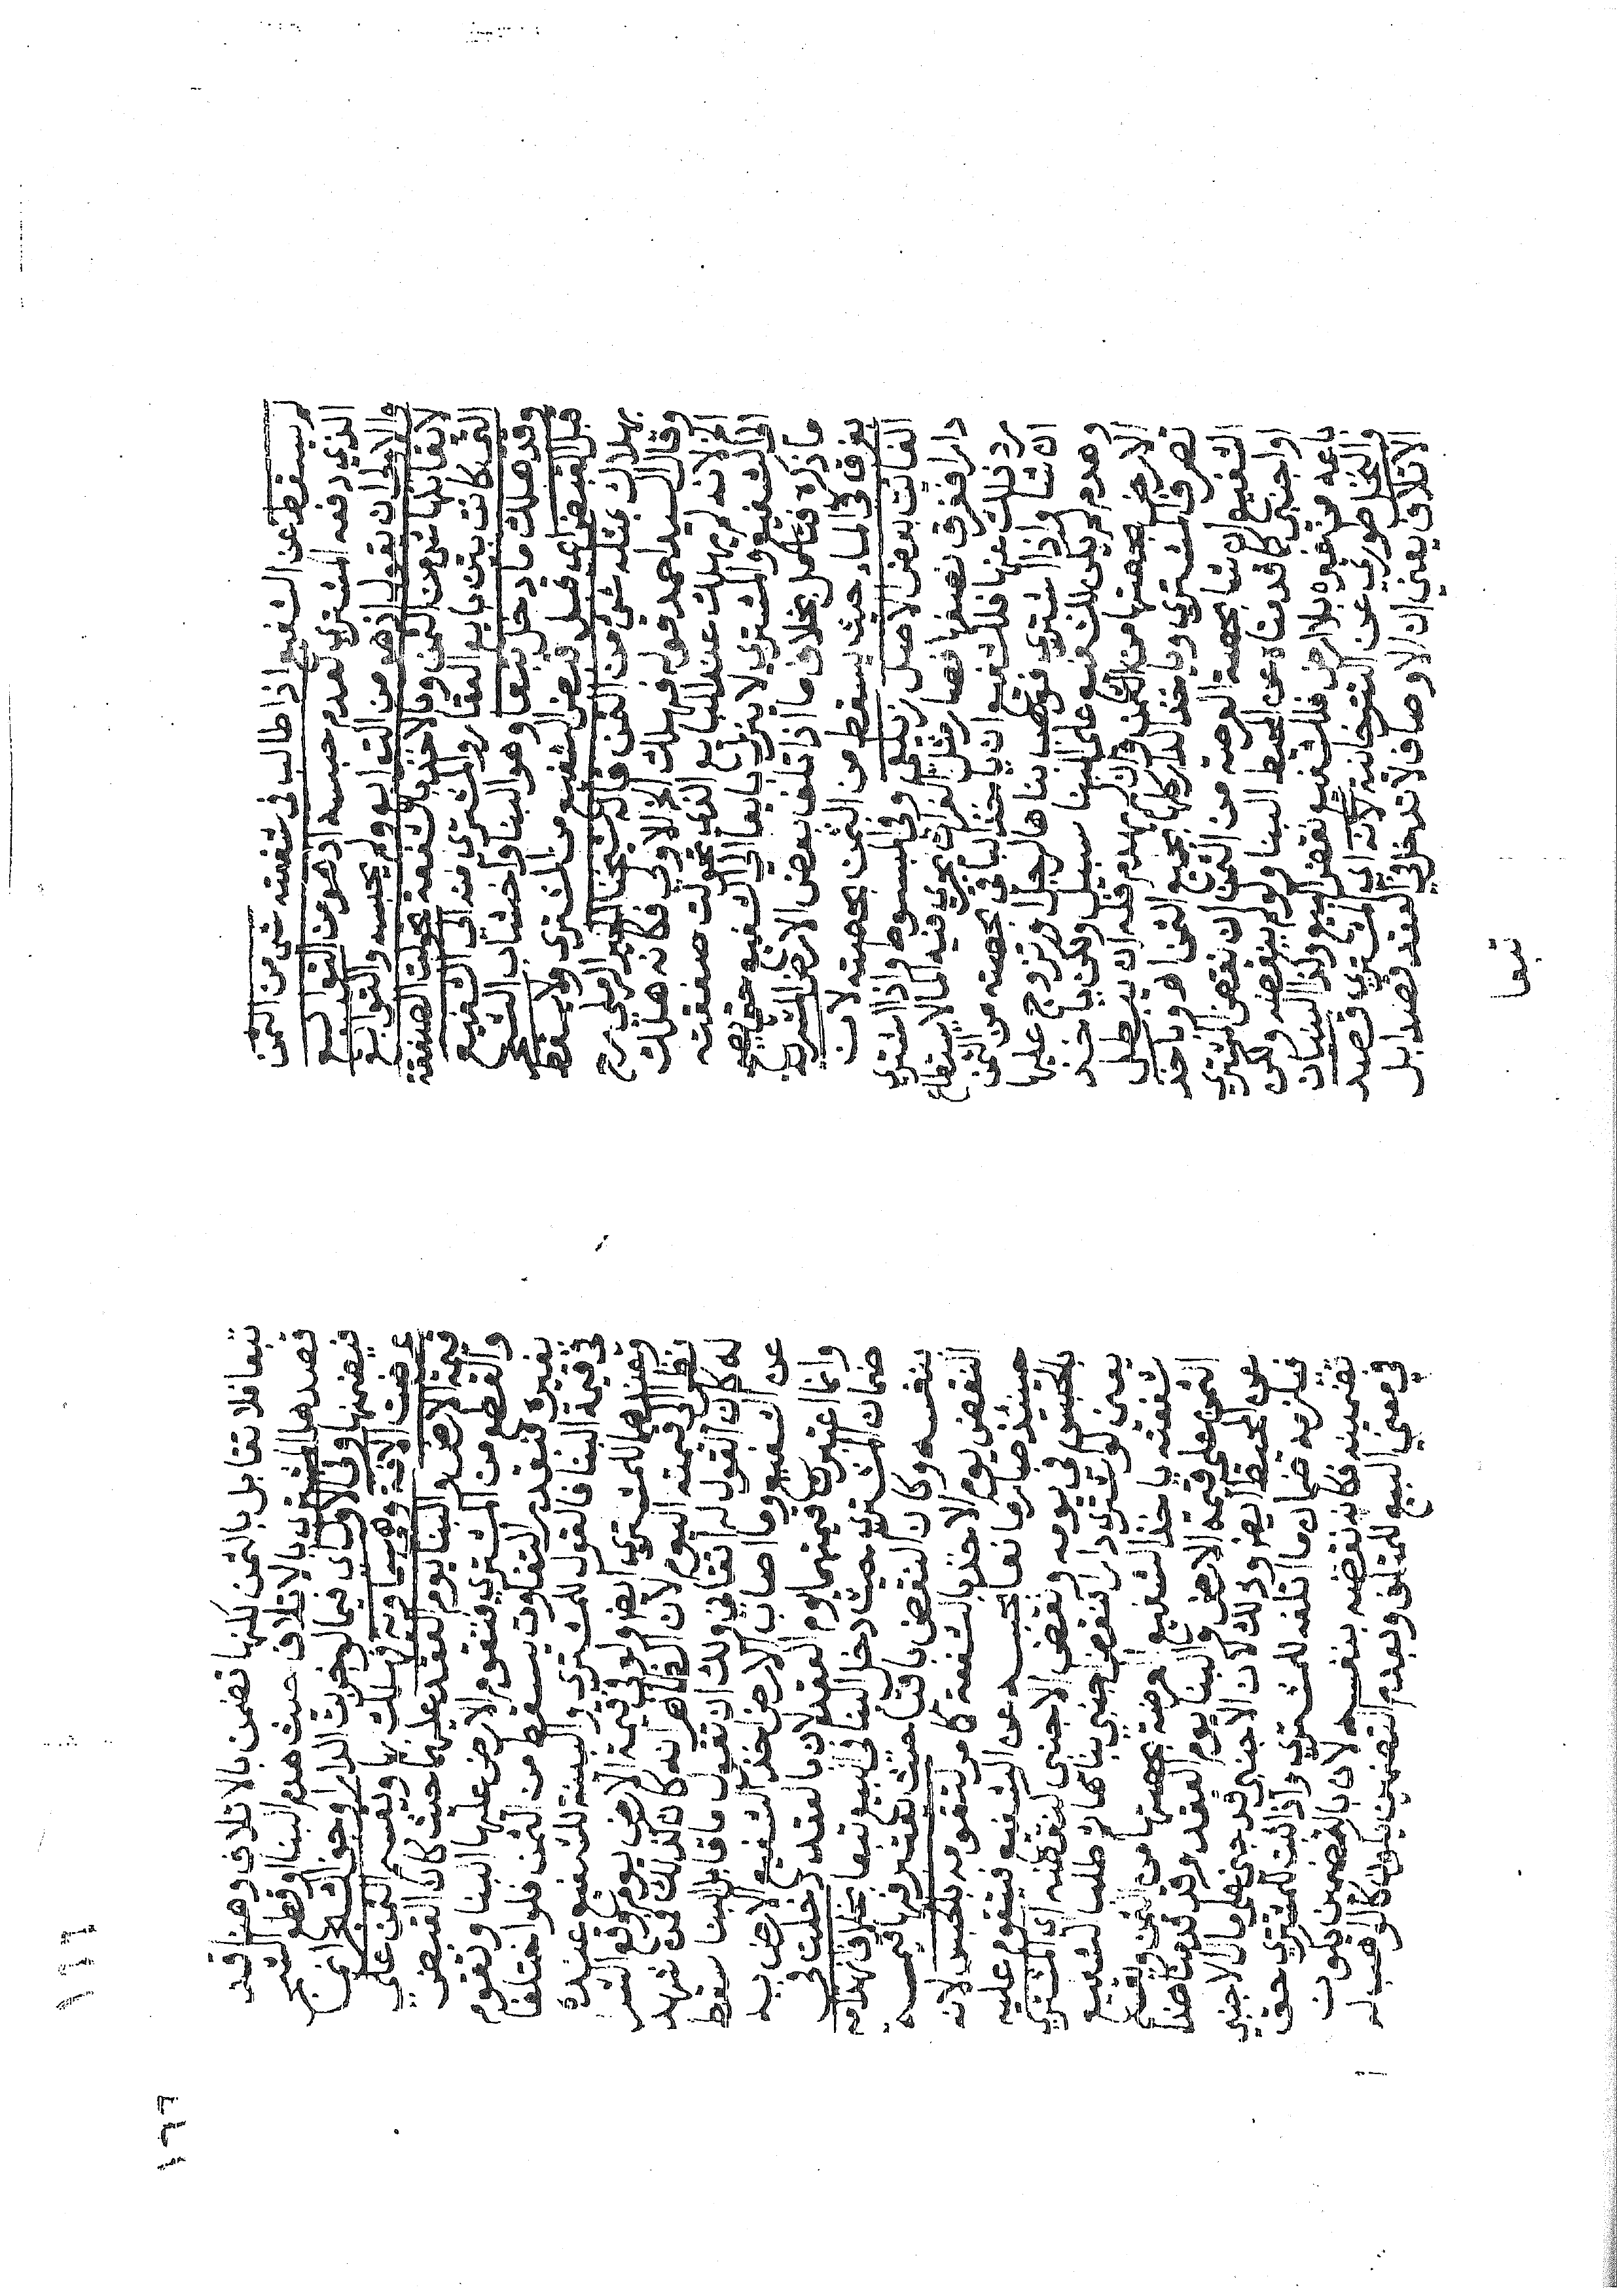 ويسقط عن الشفيع اذا طالب في شفعته شي من الثمن
الذي دفعه المشتري لعدم حبسه اذ هو من التوابع
والاولى ان يقول اذ هو من التوابع ولم يحبسه والتوابع
لا يقابلها شي من الثمن وبالاخذ بالشفعة تحولت الصفقة
التي كانت بين بايع العقار والمشتري منه الى الشفيع
وقد هلك ما دخل تبعا وهو البنا واخشاب الشجر
قبل القبض اي قبل قبض الشفيع من المشتري ولا يسقط
بهلاك مثله شي من الثمن قاله شيخنا الخير الرملي رح
وقال السيد احمد قوله لم يهلك الخ الاولى فكانه هلك
الخ لانه لم يهلك عند البايع الذي تحولت صفقته
الى الشفيع والمشتري لا ينزل بايعا الى الشفيع حتى يصح
ما ذكره فتامل بخلاف ما اذا تلف بعض الارض المشترية
بغرق في الماء حيث يسقط من الثمن بحصته لان
الفائت بعض الاصل زيلعي وفي المبسوط واذا اشترى
دارا فغرق نصفها فصار مثل الفرات يجري فيه الما لا يستطاع
رد ذلك عنها فللشفيع ان ياخذ الباقي بحصته من الثمن
ان شا واذا اشترى فوهب بناها لرجل او تزوج عليها
وهدم لم يكن للشفيع على البنا سبيل ولكن ياخذ
الارض بحصتها من الثمن وان لم يهدم فله ان يبطل
تصرف المشتري وياخذ الدار كلها بجميع الثمن اهـ وياخذ
الشفيع ان شا بحصة العرصة من الثمن ان نقض المشتري
او اجنبي كما قدمناه عن المحيط البنا ولو لم ينقضه ولكن
باعه من غيره بلا ارض فللشفيع نقض البيع وكذا النبات
والنخل طوري عن التترخانية لانه اي المشتري قصد
الاتلاف يعني ان الاوصاف لا تدخل في العقد قصدا بل
تبعا
تبعا فلا تقابل بالثمن لكنها تضمن بالاتلاف وهنا قد
قصدها المشتري بالاتلاف حيث هدم البنا وقطع الشجر
فيضمنها وفي الاول اي فيما لو خربت الدار وجف الشجر الخ
عرضت الآفة وهي سماوية فهلك بها ويقسم الثمن على
قيمة الارض والبنا يوم العقد عليهما حيث كان القبض
والقطع من المشتري فتقوم الارض عليها البنا وتقوم
بغيره فبقدر التفاوت يسقط من الثمن فلو اختلفا
في قيمة البنا فالقول للمشتري والبينة للشفيع عنده
وعندهما للمشتري ايضا ولو في قيمة الارض يوم وقع الشرا
نظر الى قيمته اليوم لان الظاهر انه كان كذلك فمن شهد
له كان القول له اتقاني ولك ان تقول ما قابل البنا سقط
عن الشفيع وما اصاب الارض اخذ الشفيع الارض به
وانما اعتبرت قيمتهما يوم العقد لان بالعقد دخلت في
ضمان المشتري حيث دخل البنا في البيع تبعا بخلاف انهدامه
بنفسه وكان النقض باقيا حيث يعتبر فيها قيمته
النقض يوم الاخذ بالشفعة كما مر لتقومه بالحبس لانه
حينئذ صار مانعا لحبسه عن الشفيع فيتقوم عليه
بالحبس في يومه ونقض الاجنبي كنقضه اي المشتري
يعني لو اشترى دارا فنقض اجنبي بناها ثم طلبها الشفيع
بشفعته ياخذ الشفيع العرصة بحصتها من الثمن ويقسم
الثمن على قيمة الارض والبنا يوم العقد وقد قدمناه اخذا
عن المحيط ايضا وذلك لان الاجنبي قد جنى على مال الاجنبي
فيلزمه ضمان ما اتلفه للمشتري واذا ثبت للمشتري حق
تضمينه فكانه نقضه بنفسه لان بالتضمين يكون
في معنى البيع للمتلف وبعدم التضمين يكون كالوهب له
١٦٦
١٦٦